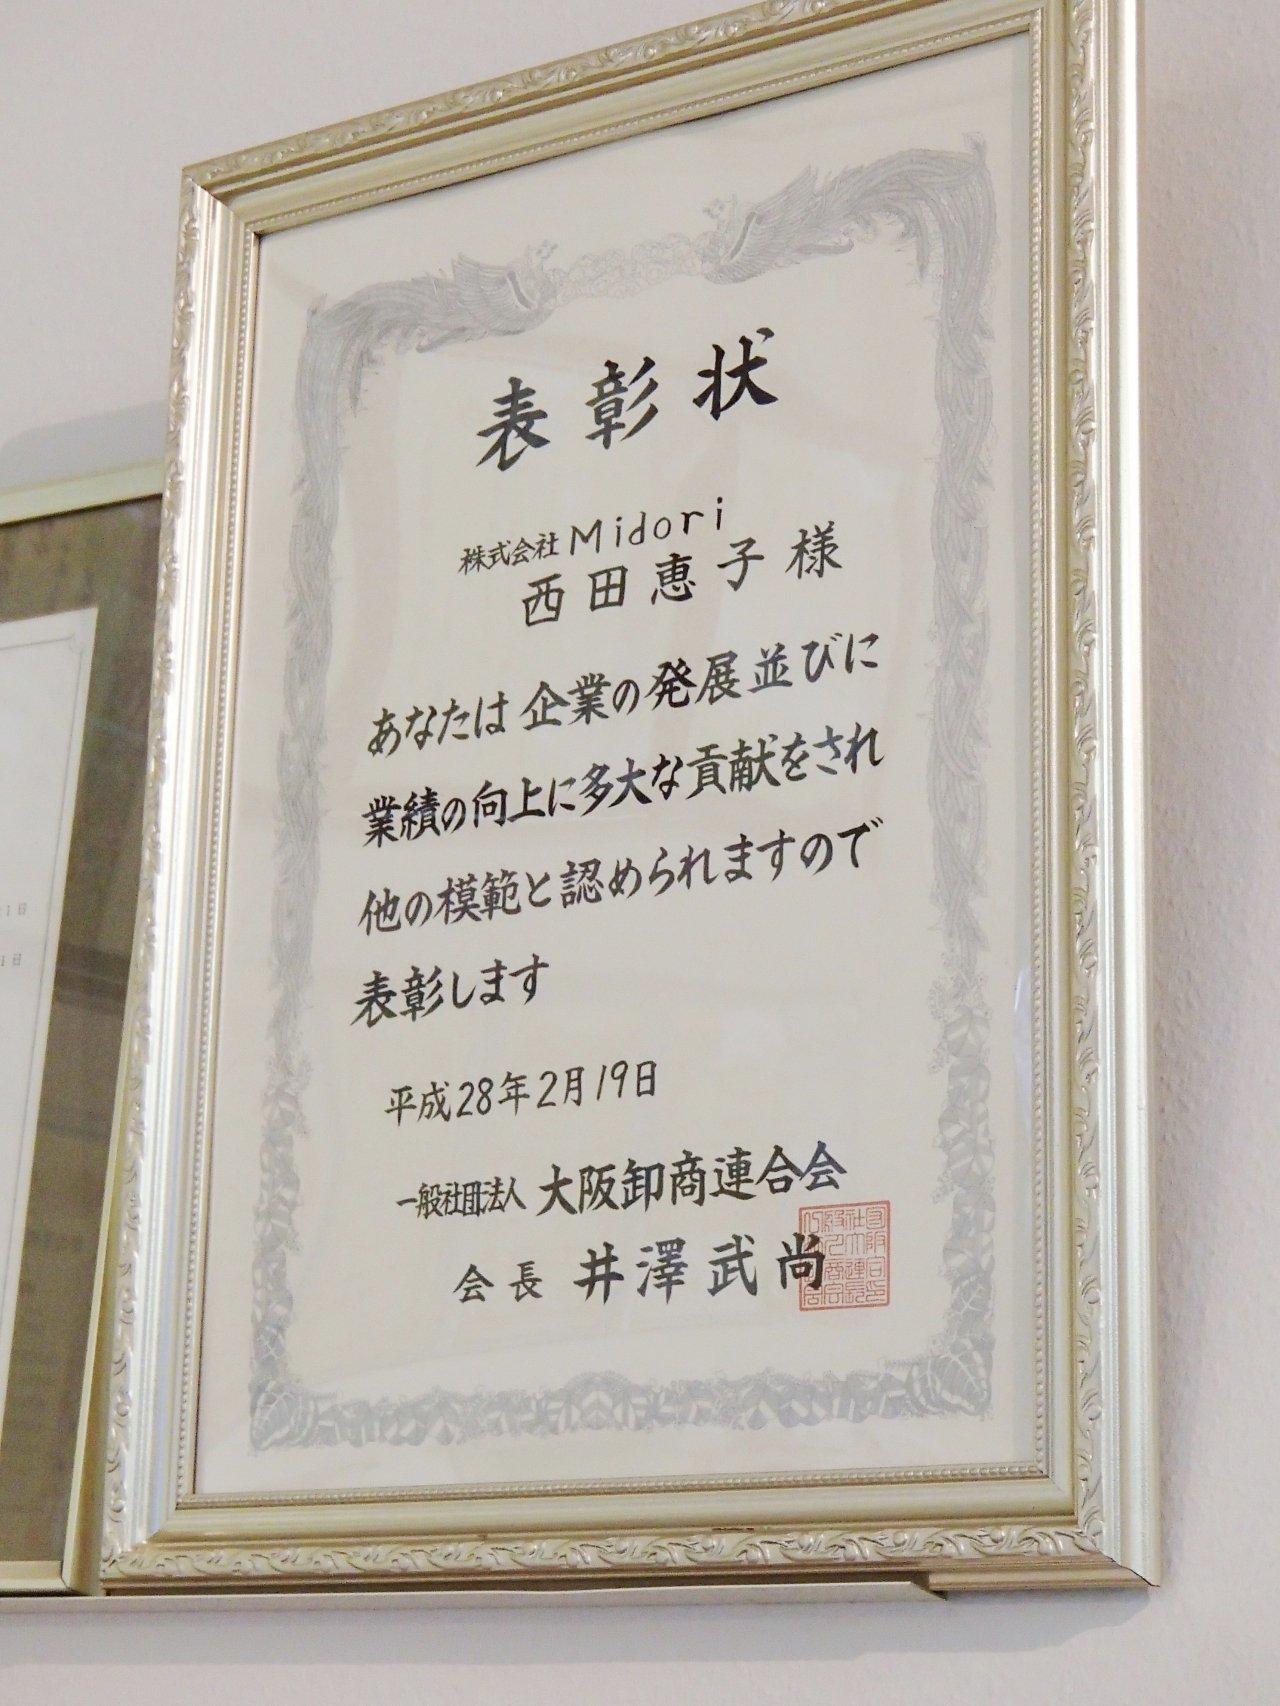 表彰状
株式会社Midori
西田恵子様
あなたは企業の発展並びに
業績の向上に多大な貢献をされ
他の模範と認められますので
表彰します
平成28年2月19日
一般社団法人 大阪卸商連合会
会長 井澤武尚
1日
1日